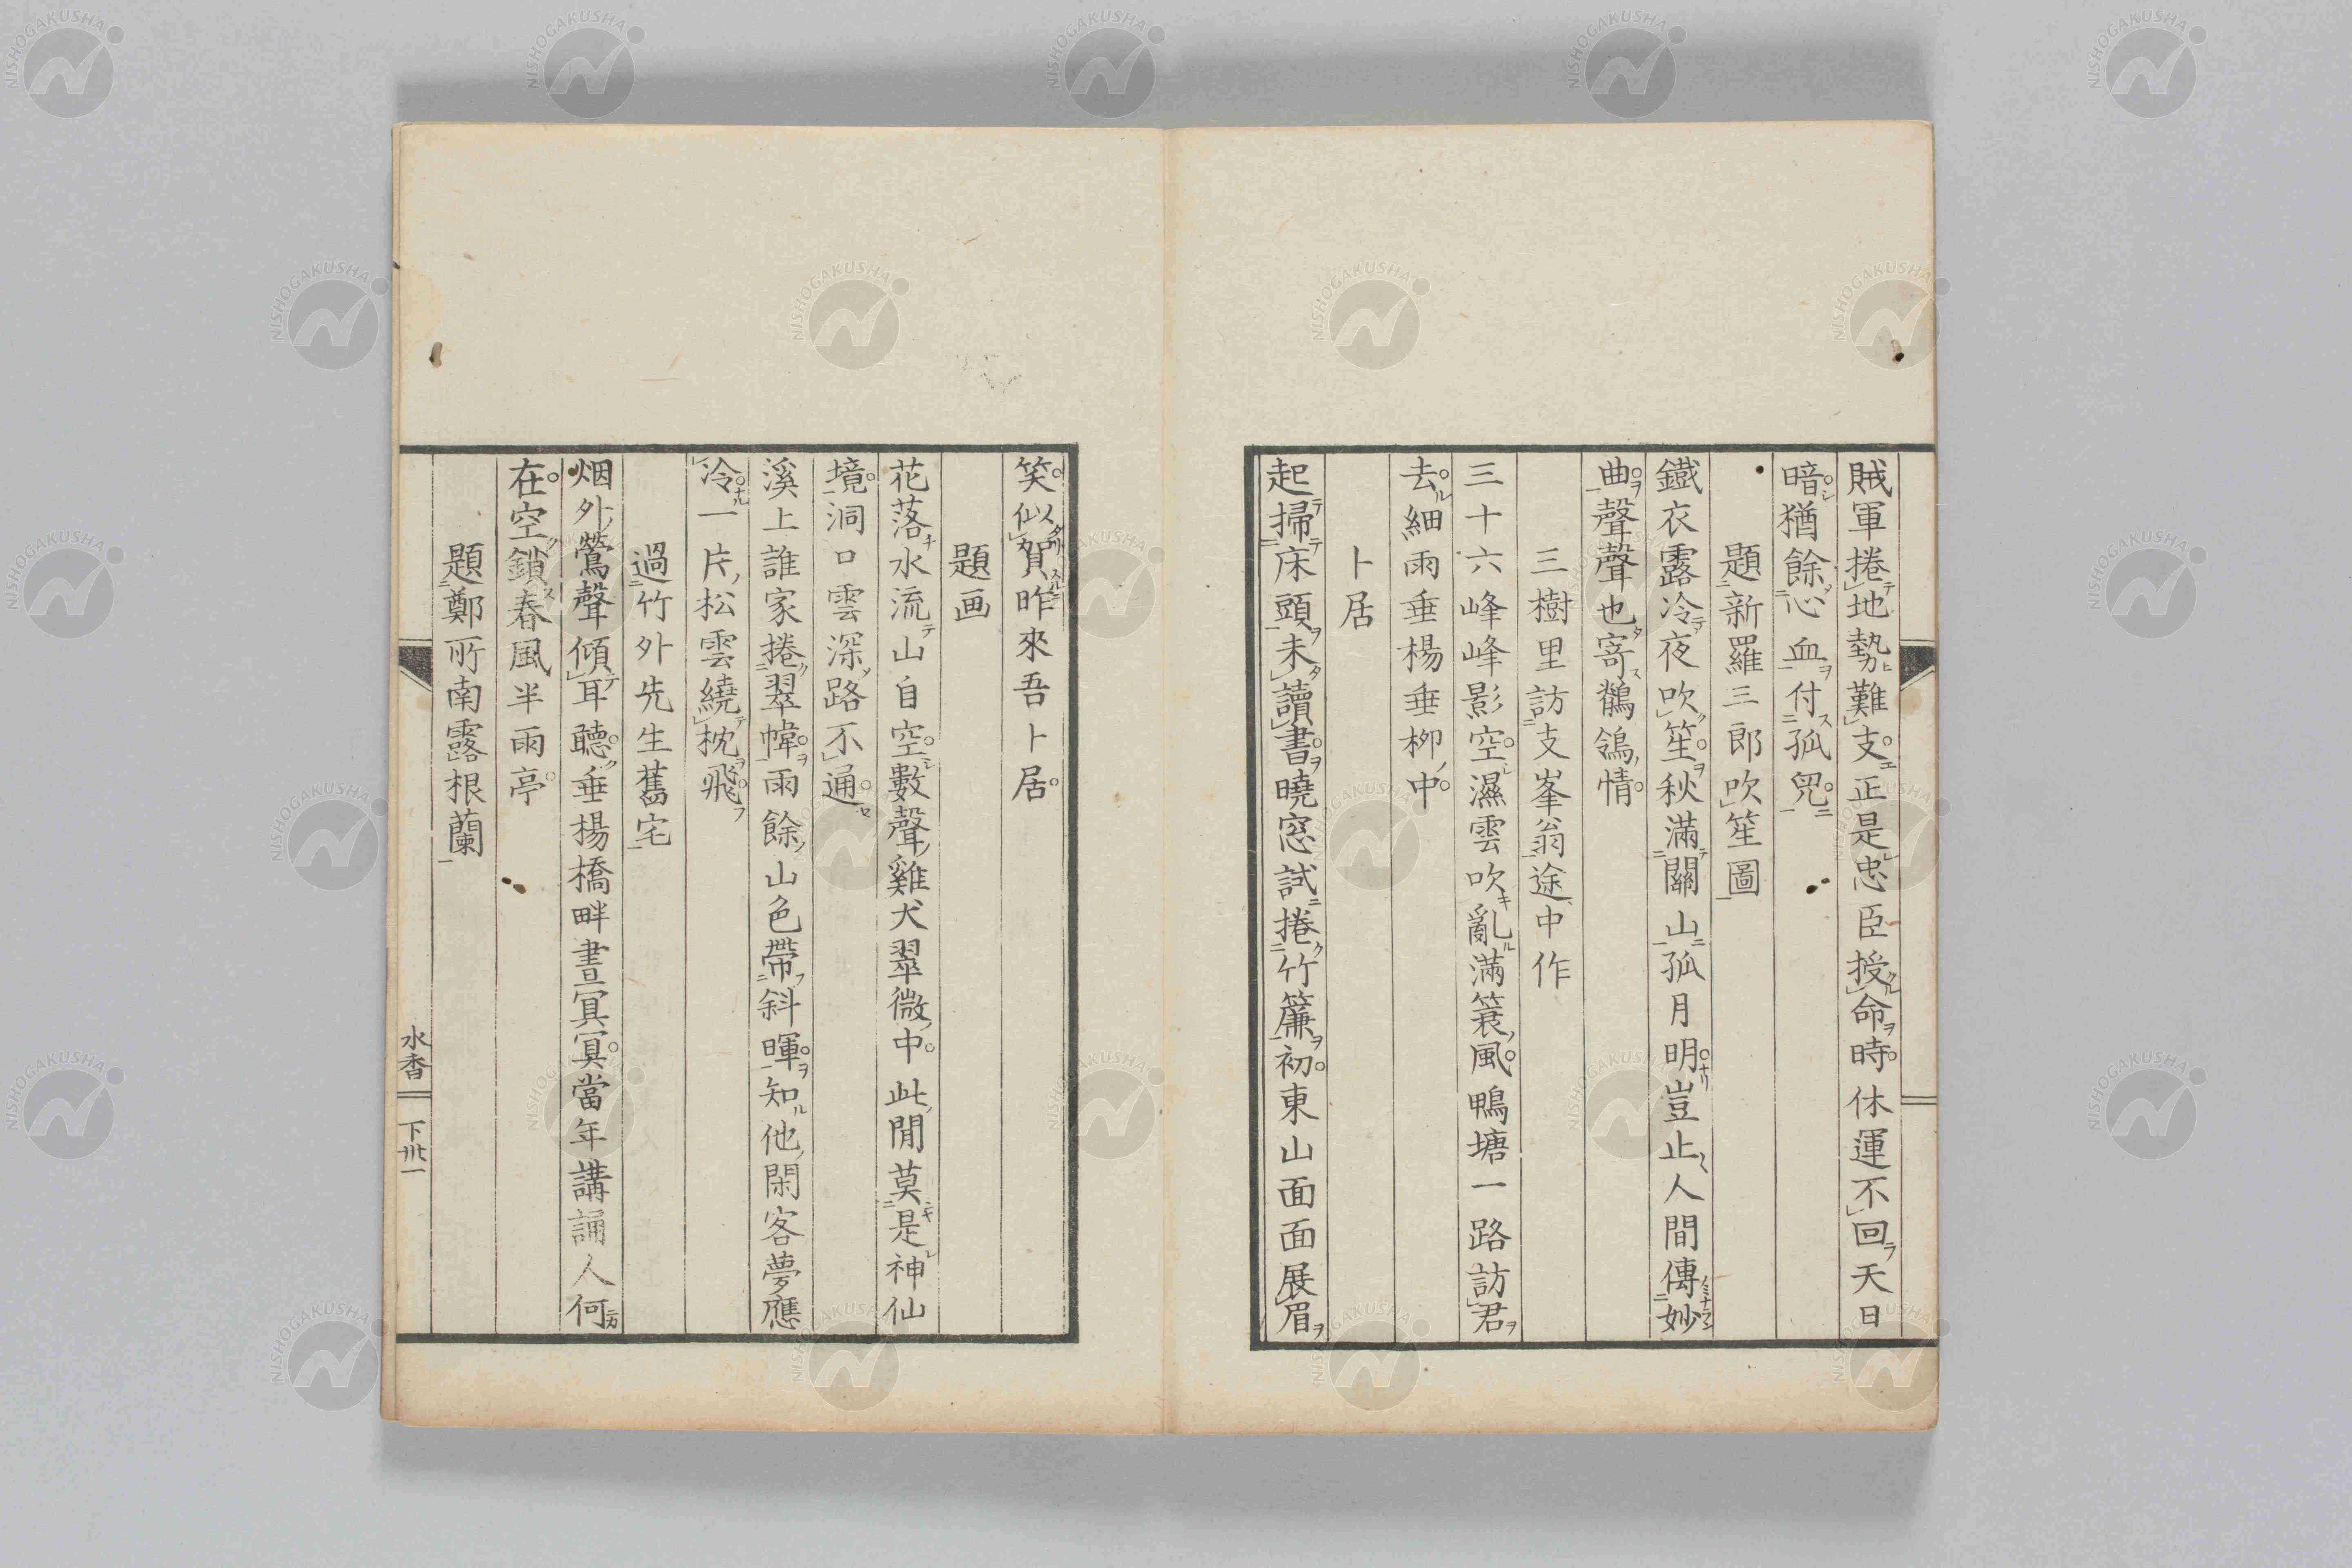 賊軍捲地勢難支正是忠臣授命時休運不回天日
暗猶餘心血付孤兒
題新羅三郎吹笙圖
鐵衣露冷夜吹笙秋滿關山孤月明豈止人間傳妙
曲聲聲也寄鶺鴒情
三樹里訪支峯翁途中作
三十六峰峰影空濕雲吹亂滿簑風鴨塘一路訪君
去細雨垂楊垂柳中
卜居
起掃床頭未讀書曉窓試捲竹簾初東山面面展眉
笑似賀昨來吾卜居
題画
花落水流山自空數聲雞犬翠微中此閒莫是神仙
境洞口雲深路不通
溪上誰家捲翠幃雨餘山色帶斜暉知他閑客夢應
冷一片松雲繞枕飛
過竹外先生舊宅
烟外鶯聲傾耳聽垂楊橋畔晝冥冥當年講誦人何
在空鎖春風半雨亭
題鄭所南露根蘭
水香 下卅一
NISHOGAKUSHA